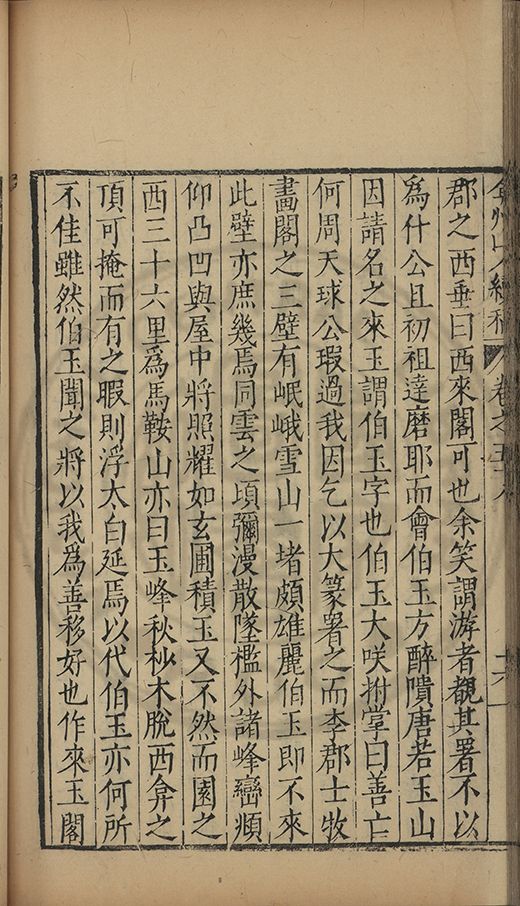 弇州山人續稿 卷之五十八 十六
郡之西垂曰西來閣可也余笑謂游者覩其署不以
為什公且初祖達磨耶而會伯玉方醉隤唐若玉山
因請名之來玉謂伯玉字也伯玉大咲拊掌曰善亡
何周天球公瑕過我因乞以大篆署之而李郡士牧
畫閣之三壁有岷峨雪山一堵頗雄麗伯玉即不來
此壁亦庶幾焉同雲之頃彌漫散墜檻外諸峰巒頫
仰凸凹與屋中將照耀如玄圃積玉又不然而園之
西三十六里為馬鞍山亦曰玉峰秋杪木脫西弇之
頂可掩而有之暇則浮大白延焉以代伯玉亦何所
不佳雖然伯玉聞之將以我為善移好也作來玉閣